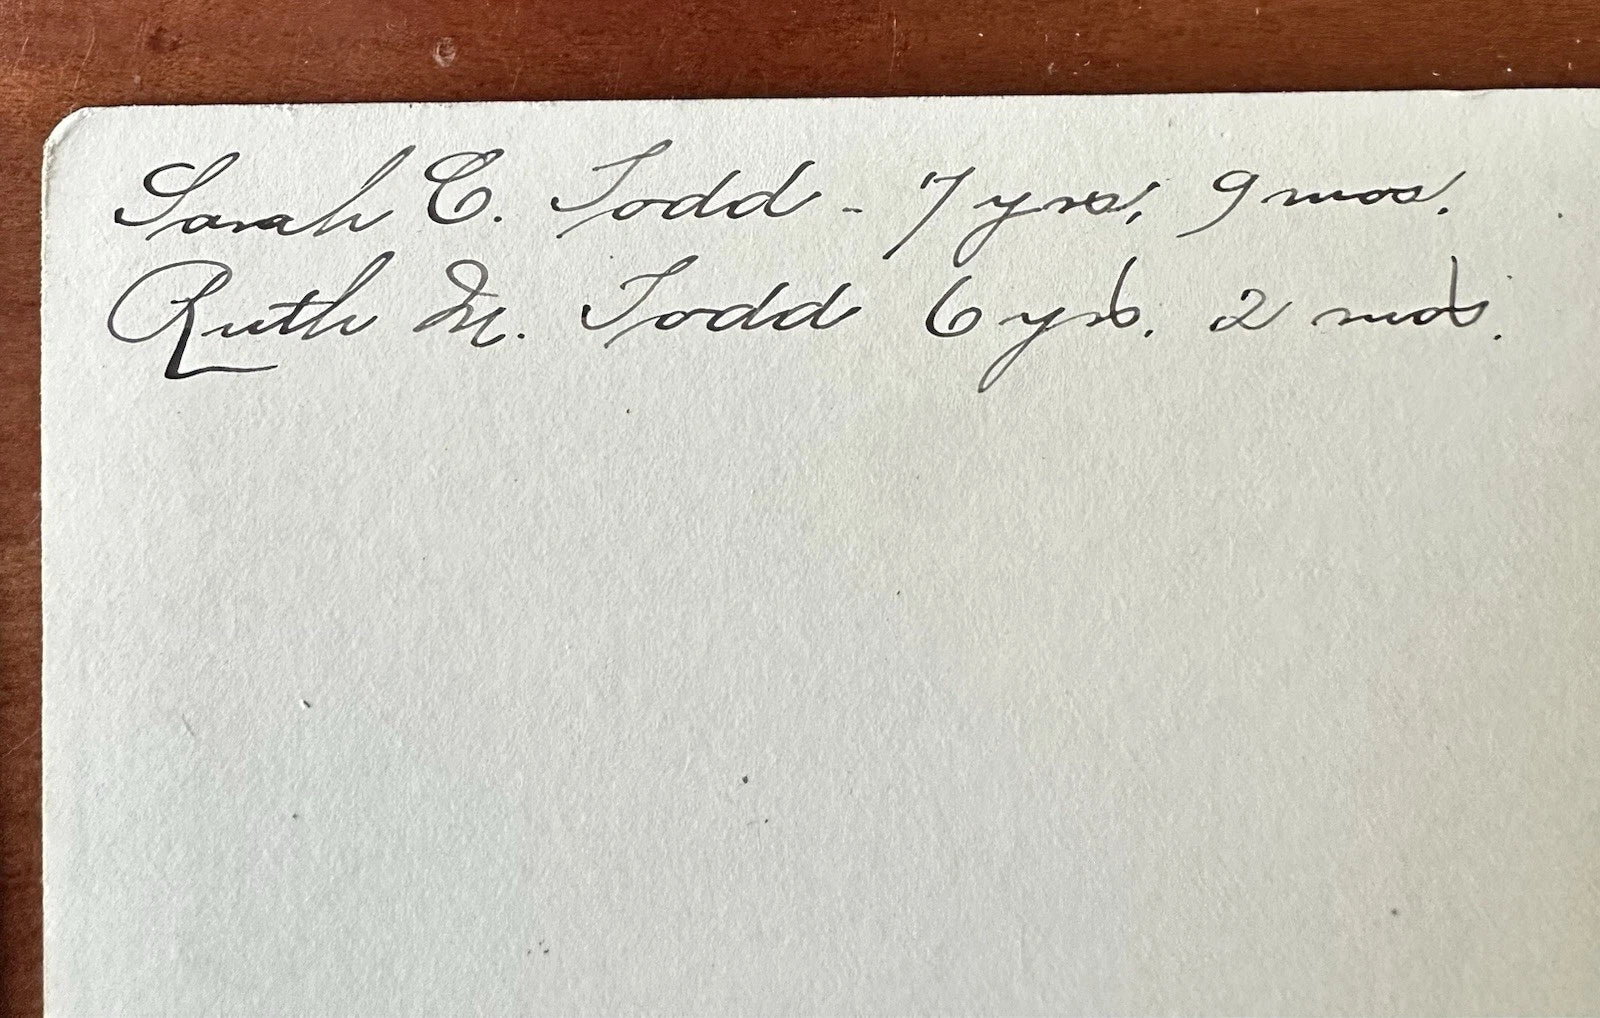 Sarah C. Todd - 7 yrs, 9 mos.
Ruth M. Todd 6 yrs. 2 mos.